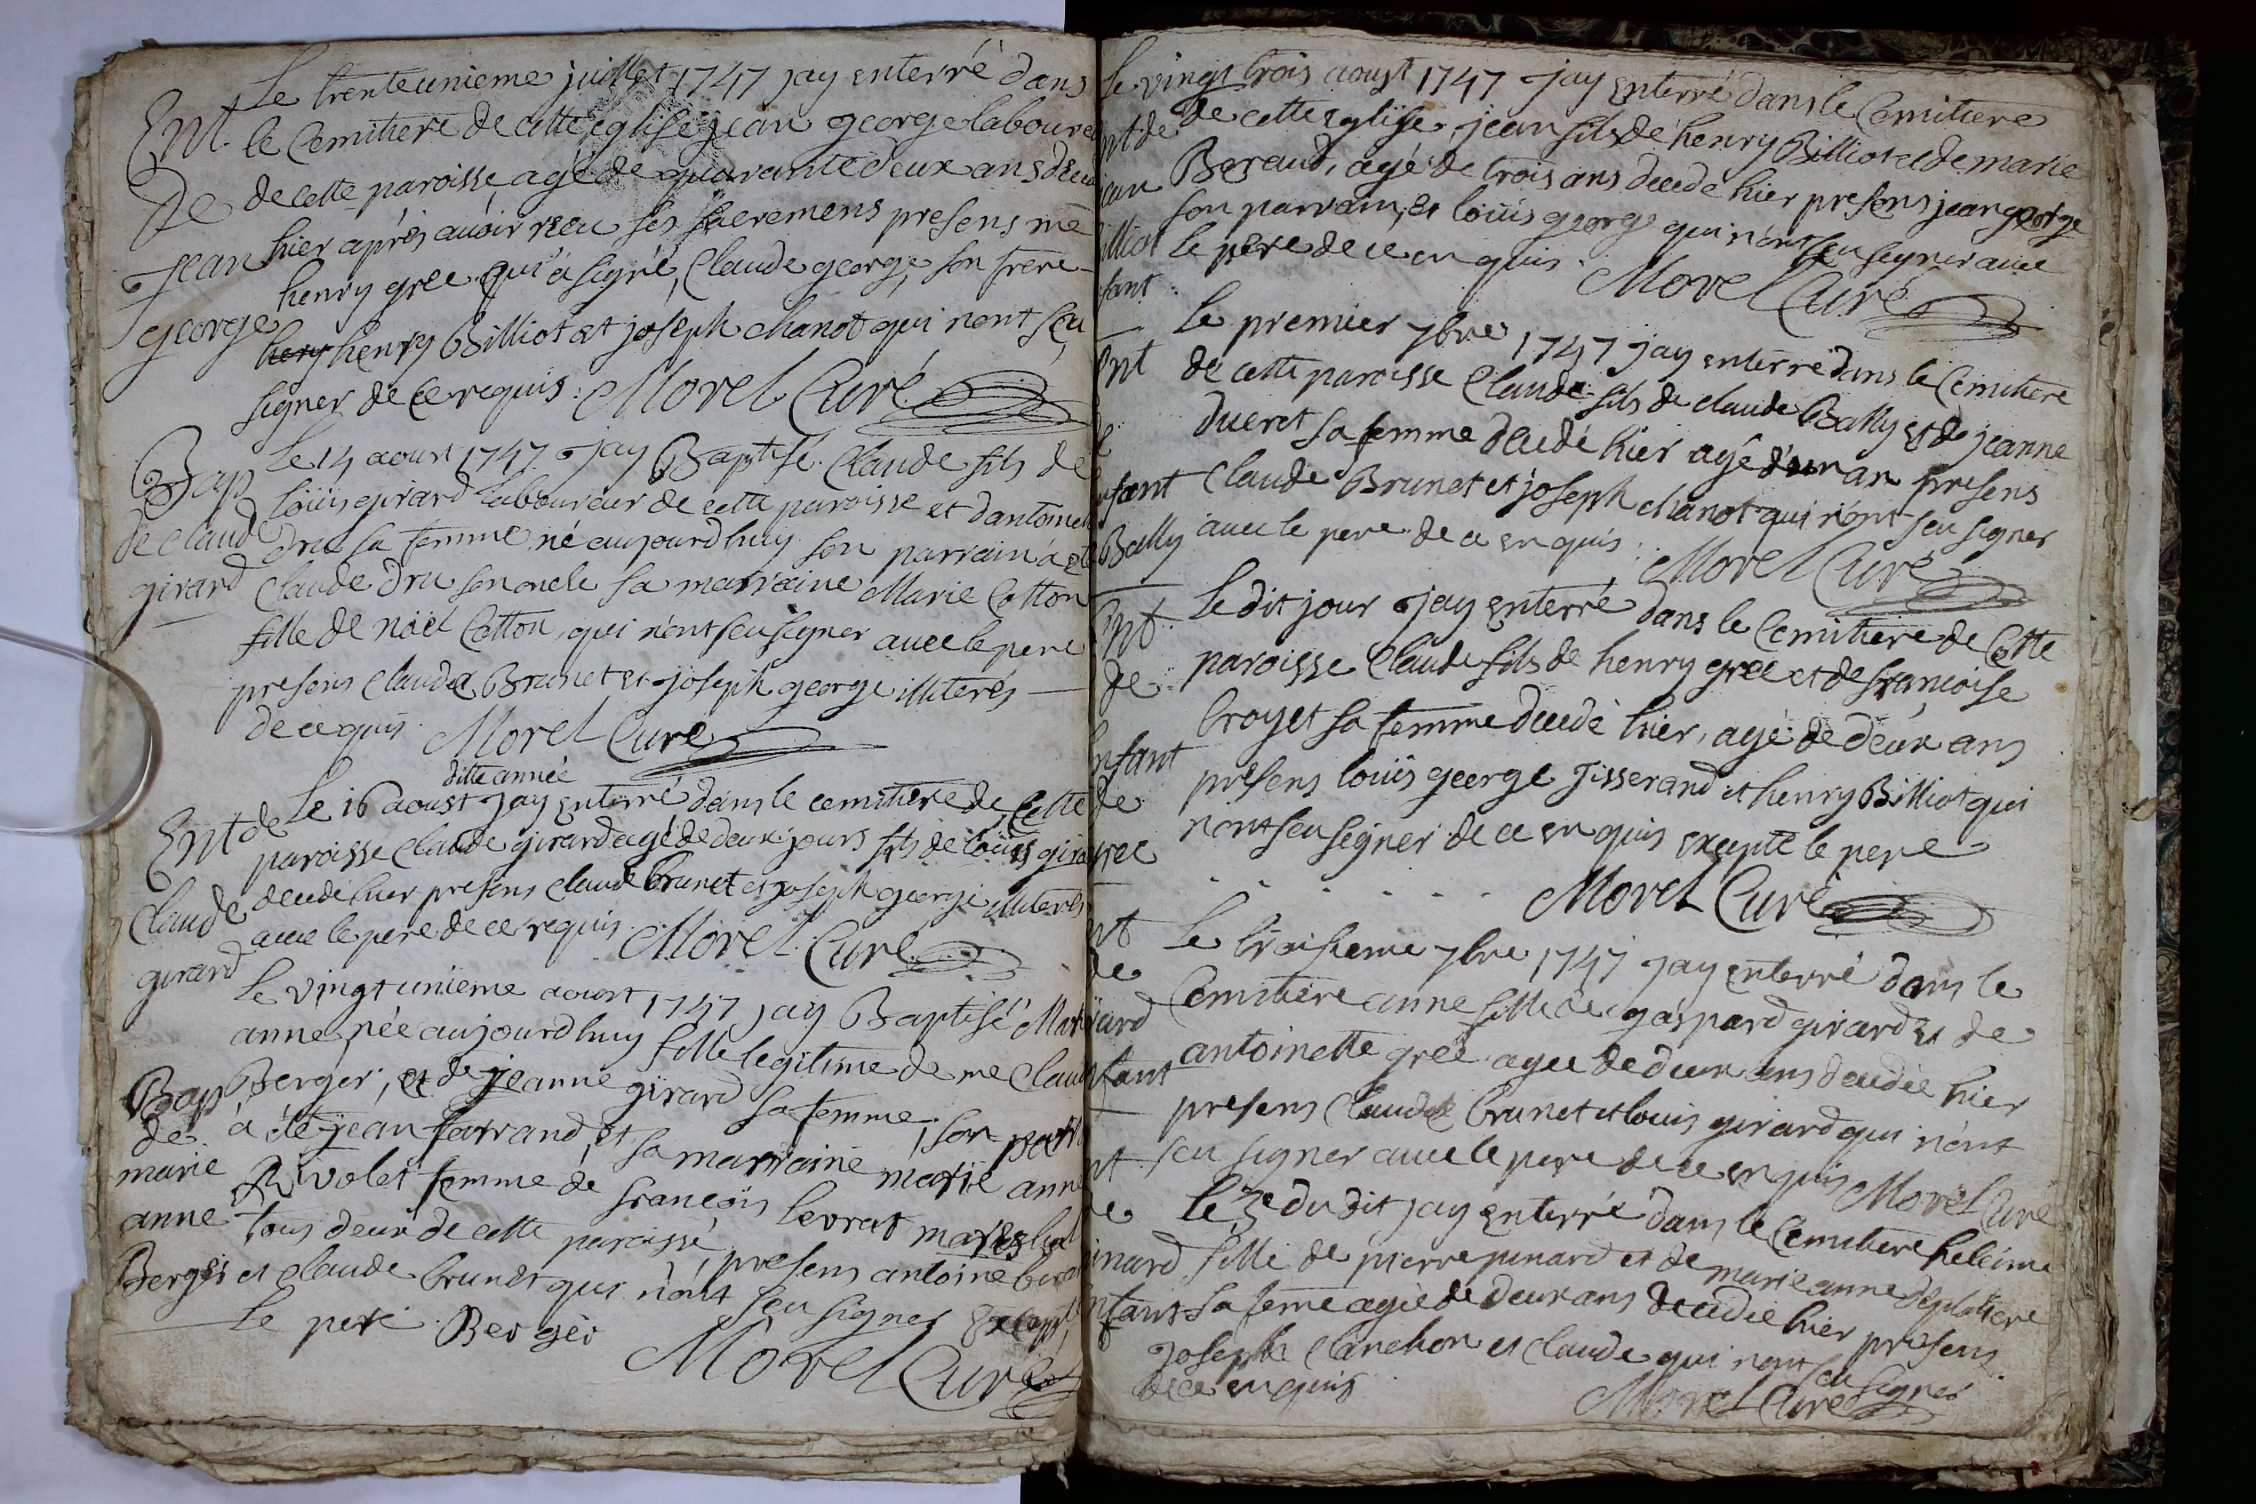 Le trenteunieme juillet 1747 jay enterré dans
Ent. le Cemitiere de cette eglise jean george laboureu
De de cette paroisse, agé de quarante deux ans deced
jean hier aprés auoir reçu ses sacremens presens me
george henry gree qui a signé, Claude george, son frere
hery henry Billiot et joseph chanot qui n'ont sçu
signer de ce requis : Morel Curé
Bap Le 14 aoust 1747 jay Baptisé Claude fils de
de claud loüis girard laboureur de cette paroisse et dantoinett
girard dru sa femme né aujourdhuy son parrain à eté
Claude dru son oncle sa marraine Marie Cotton
fille de noël Cotton, qui n'ont seu signer auec le pere
presens claude Brunet et joseph george illiterés
de ce quis. Morel Curé
ditte année
Ent de Le 16 aoust jay enterré dans le cemitiere de Cette
paroisse Claude girard agé de deux jours fils de loüis gira
Claude decedé hier presens claude Brunet et joseph george illiterés
girard auec le pere de ce requis. Morel Curé
Le vingtunieme aoust 1747 jay Baptisé Mari
anne née aujourdhuy fille legitime de me Claud
Bap Berger, et de jeanne girard sa femme, son parr
de à eté jean farrand, et sa marraine marie anne
marie Rivolet femme de françois levrat
anne tous deux de cette paroisse, presens antoine
Berger et claude brunet qui n'ont seu signer Excepté
le pere. Berger
Morel Curé
Le vingt trois aoust 1747 jay enterré dans le Cemitiere
nt de de cette eglise, jean fils de henry Billiot et de marie
jean Beraud, agé de trois ans decedé hier presens jean george
illiot son parrain, et loüis george qui n'ont sçu signer auec
fant le pere de ce en quis. Morel Curé
Le premier 7bre 1747 jay enterré dans le Cemitiere
Ent de cette paroisse Claude fils de claude Bally et de jeanne
dueret sa femme decedé hier agé d'un an presens
nfant Claude Brunet et joseph chanot qui n'ont seu signer
Bally auec le pere de ce en quis. Morel Curé
Ent. Le dit jour jay enterré dans le Cemitiere de Cette
de paroisse Claude fils de henry gree et de françoise
troyet sa femme decedé hier, agé de deux ans
nfant presens loüis george Tisserand et henry Billiot qui
de n'ont seu signer de ce en quis excepté le pere
gree Morel Curé
nt Le troisieme 7bre 1747 jay enterré dans le
de Cemitiere anne fille de gaspard girard et de
irard antoinette gree agée de deux ans decedée hier
nfant presens Claude brunet et louis girard qui n'ont
nt seu signer auec le pere de ce en quis Morel Curé
de Le 3e du dit jay enterré dans le Cemitiere heleine
inard fille de pierre pinard et de marie anne desplatiere
nfant sa feme agée de deux ans decedée hier presens
joseph Clanchon et claude qui n'ont seu signer
de ce en quis Morel Curé